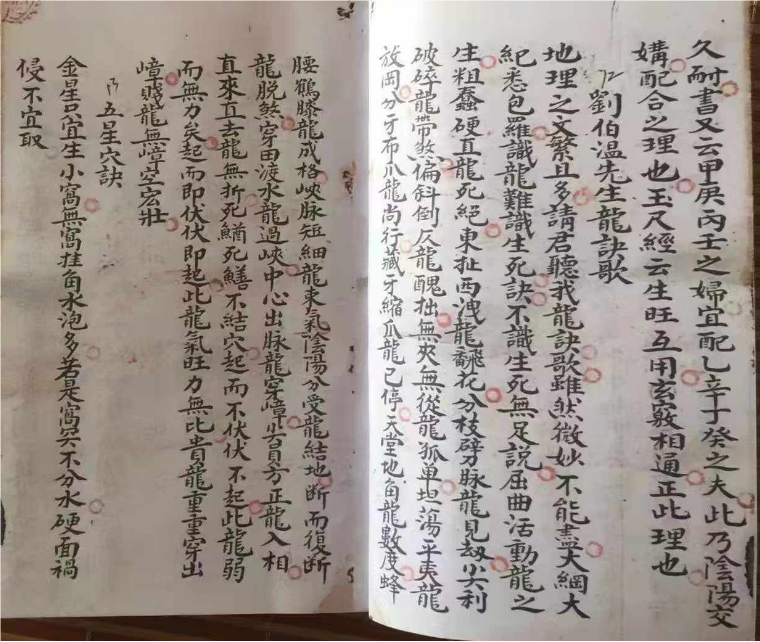 久耐書又云甲庚丙壬之婦宜配乙辛丁癸之夫此乃陰陽交
媾配合之理也玉尺經云生旺互用玄竅相通正此理也
劉伯温先生龍訣歌
地理之文繁且多請君聽我龍訣歌雖然微妙不能盡大綱大
紀悉包羅識龍難識生死訣不識生死無足説屈曲活動龍之
生粗蠢硬直龍死絕東扯西洩龍飜花分枝劈脉龍見刼尖利
破碎龍帶煞偏斜倒仄龍醜拙無夾無從龍孤单坦蕩平夷龍
放岡分牙布爪龍尚行藏牙縮爪龍已停天堂地角龍數度蜂
腰鶴膝龍成格峽脉短細龍束氣陰陽分受龍結地斷而復斷
龍脱煞穿田渡水龍過峽中心出脉龍穿嶂出百方正龍入相
直來直去龍無折死鰌死鱔不結穴起而不伏伏不起此龍弱
而無力矣起而即伏伏即起此龍氣旺力無比貴龍重重穿出
嶂賤龍無嶂空宏壯
五星穴訣
金星只宜生小窩無窩挂角水泡多若是窩突不分水硬面禍
侵不宜取